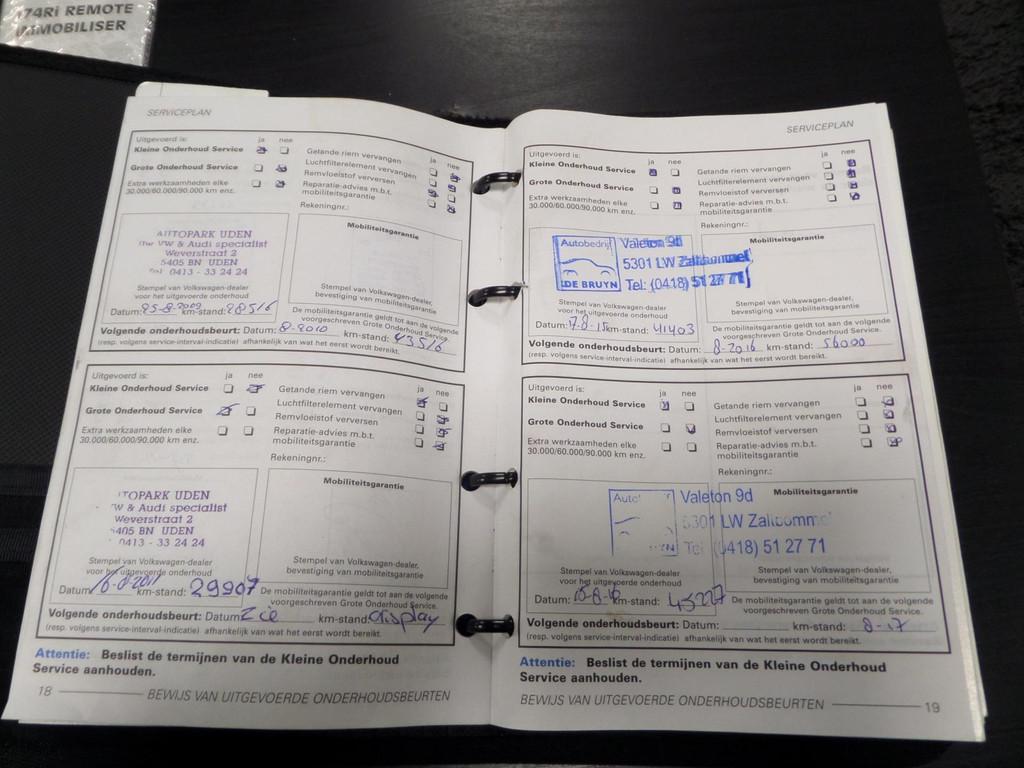 74Ri REMOTE
IMMOBILISER
SERVICEPLAN
Uitgevoerd is:
ja nee
Kleine Onderhoud Service
Grote Onderhoud Service
Extra werkzaamheden elke
30.000/60.000/90.000 km enz.
ja nee
Getande riem vervangen
Luchtfilterelement vervangen
Remvloeistof verversen
Reparatie-advies m.b.t.
mobiliteitsgarantie
Rekeningnr.:
AUTOPARK UDEN
VW & Audi specialist
Weverstraat 2
5405 BN UDEN
Tel 0413 - 33 24 24
Stempel van Volkswagen-dealer
voor het uitgevoerde onderhoud
Datum: 25-8-2009 km-stand: 28516
Mobiliteitsgarantie
Stempel van Volkswagen-dealer,
bevestiging van mobiliteitsgarantie
De mobiliteitsgarantie geldt tot aan de volgende
voorgeschreven Grote Onderhoud Service.
Volgende onderhoudsbeurt: Datum: 8-2010 km-stand: 43516
(resp. volgens service-interval-indicatie) afhankelijk van wat het eerst wordt bereikt.
Uitgevoerd is:
ja nee
Kleine Onderhoud Service
Grote Onderhoud Service
Extra werkzaamheden elke
30.000/60.000/90.000 km enz.
ja nee
Getande riem vervangen
Luchtfilterelement vervangen
Remvloeistof verversen
Reparatie-advies m.b.t.
mobiliteitsgarantie
Rekeningnr.:
TOPARK UDEN
W & Audi specialist
Weverstraat 2
5405 BN UDEN
0413 - 33 24 24
Stempel van Volkswagen-dealer
voor het uitgevoerde onderhoud
Datum: 16-8-2011 km-stand: 29907
Mobiliteitsgarantie
Stempel van Volkswagen-dealer,
bevestiging van mobiliteitsgarantie
De mobiliteitsgarantie geldt tot aan de volgende
voorgeschreven Grote Onderhoud Service.
Volgende onderhoudsbeurt: Datum: Zie km-stand: display
(resp. volgens service-interval-indicatie) afhankelijk van wat het eerst wordt bereikt.
Attentie: Beslist de termijnen van de Kleine Onderhoud
Service aanhouden.
18 BEWIJS VAN UITGEVOERDE ONDERHOUDSBEURTEN
SERVICEPLAN
Uitgevoerd is:
ja nee
Kleine Onderhoud Service
Grote Onderhoud Service
Extra werkzaamheden elke
30.000/60.000/90.000 km enz.
ja nee
Getande riem vervangen
Luchtfilterelement vervangen
Remvloeistof verversen
Reparatie-advies m.b.t.
mobiliteitsgarantie
Rekeningnr.:
Autobedrijf
DE BRUYN
Valeton 9d
5301 LW Zaltbommel
Tel: (0418) 51 27 71
Stempel van Volkswagen-dealer
voor het uitgevoerde onderhoud
Datum: 17-8-15 km-stand: 41403
Mobiliteitsgarantie
Stempel van Volkswagen-dealer,
bevestiging van mobiliteitsgarantie
De mobiliteitsgarantie geldt tot aan de volgende
voorgeschreven Grote Onderhoud Service.
Volgende onderhoudsbeurt: Datum: 8-2016 km-stand: 56000
(resp. volgens service-interval-indicatie) afhankelijk van wat het eerst wordt bereikt.
Uitgevoerd is:
ja nee
Kleine Onderhoud Service
Grote Onderhoud Service
Extra werkzaamheden elke
30.000/60.000/90.000 km enz.
ja nee
Getande riem vervangen
Luchtfilterelement vervangen
Remvloeistof verversen
Reparatie-advies m.b.t.
mobiliteitsgarantie
Rekeningnr.:
Valeton 9d
5301 LW Zaltbomme
Tel (0418) 51 27 71
Stempel van Volkswagen-dealer
voor het uitgevoerde onderhoud
Datum: 15-8-16 km-stand: 45227
Mobiliteitsgarantie
Stempel van Volkswagen-dealer,
bevestiging van mobiliteitsgarantie
De mobiliteitsgarantie geldt tot aan de volgende
voorgeschreven Grote Onderhoud Service.
Volgende onderhoudsbeurt: Datum: km-stand: 8-17
(resp. volgens service-interval-indicatie) afhankelijk van wat het eerst wordt bereikt.
Attentie: Beslist de termijnen van de Kleine Onderhoud
Service aanhouden.
BEWIJS VAN UITGEVOERDE ONDERHOUDSBEURTEN 19